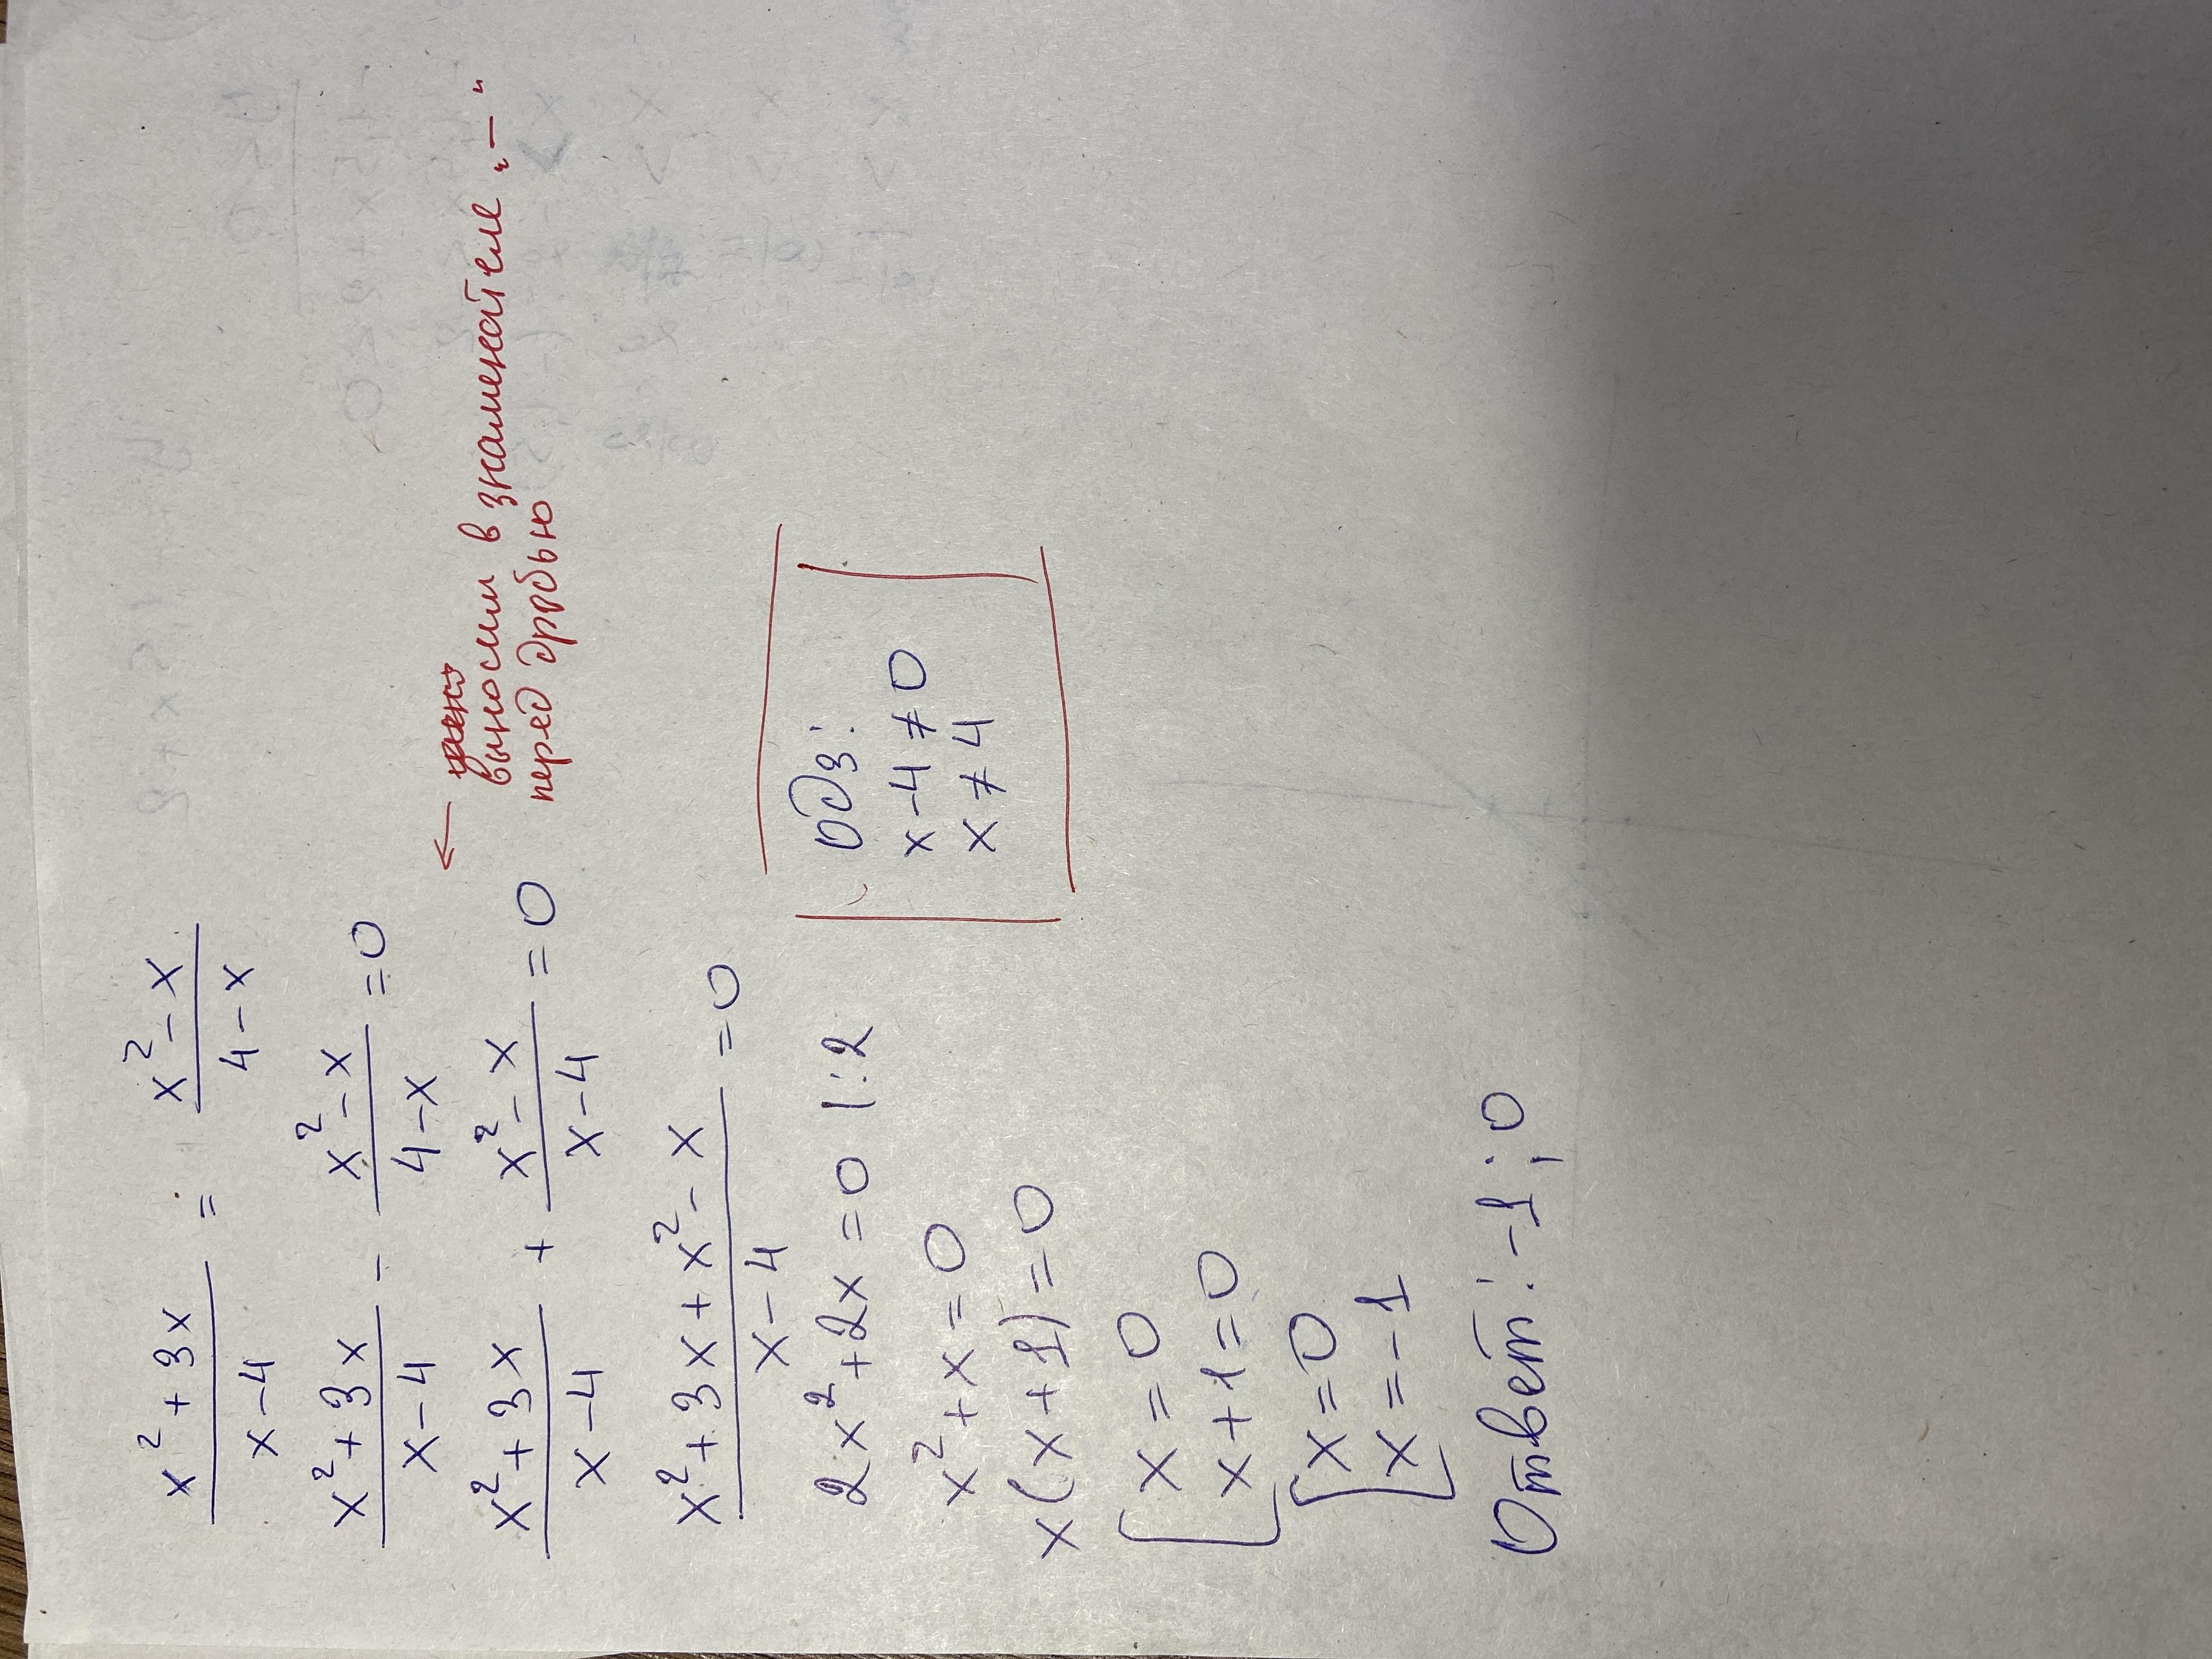 x² + 3x / x - 4 = x² - x / 4 - x
x² + 3x / x - 4 - x² - x / 4 - x = 0
x² + 3x / x - 4 + x² - x / x - 4 = 0
← выносим в знаменателе „-“
перед дробью
x² + 3x + x² - x / x - 4 = 0
2x² + 2x = 0 |:2
x² + x = 0
x(x + 1) = 0
[ x = 0
x + 1 = 0
[ x = 0
x = -1
Ответ: -1; 0
ОДЗ:
x - 4 ≠ 0
x ≠ 4